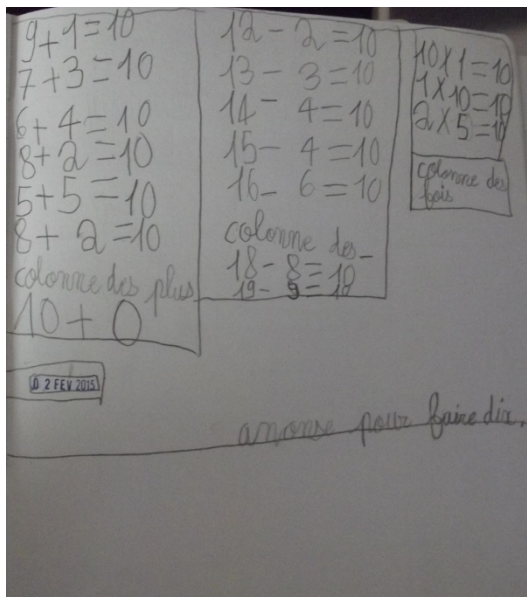 9+1=10
7+3=10
6+4=10
8+2=10
5+5=10
8+2=10
colonne des plus
10+0
12-2=10
13-3=10
14-4=10
15-4=10
16-6=10
colonne des-
18-8=10
19-9=10
10x1=10
1x10=10
2x5=10
colonne des
fois
0 2 FEV 2015
anonse pour faire dix.